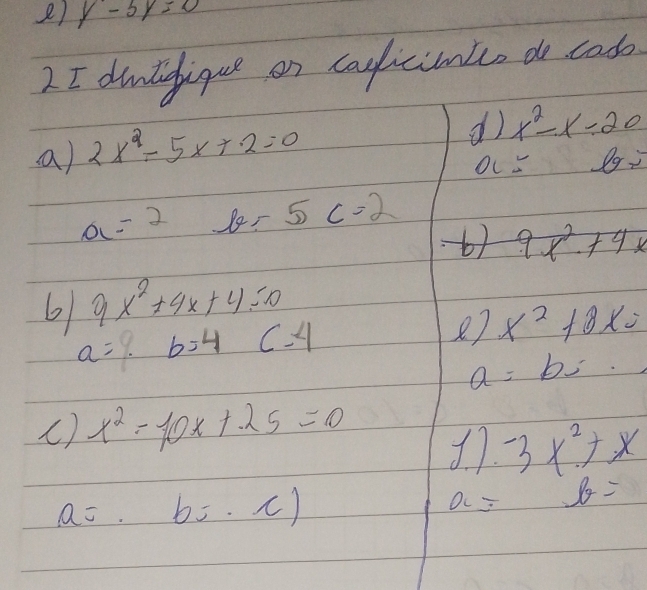 e) y² - 5y = 0
2 Identifique os coeficientes de cada
a) 2x² - 5x + 2 = 0
a = 2 b = 5 c = 2
b) 9x² + 4x + 4 = 0
a = 9. b = 4 c = 4
c) x² - 10x + 25 = 0
a = . b = . c)
d) x² - x - 20
a = b =
b) 9x² + 4x
e) x² + 8x =
a = b = .
f) -3x² + x
a = b =